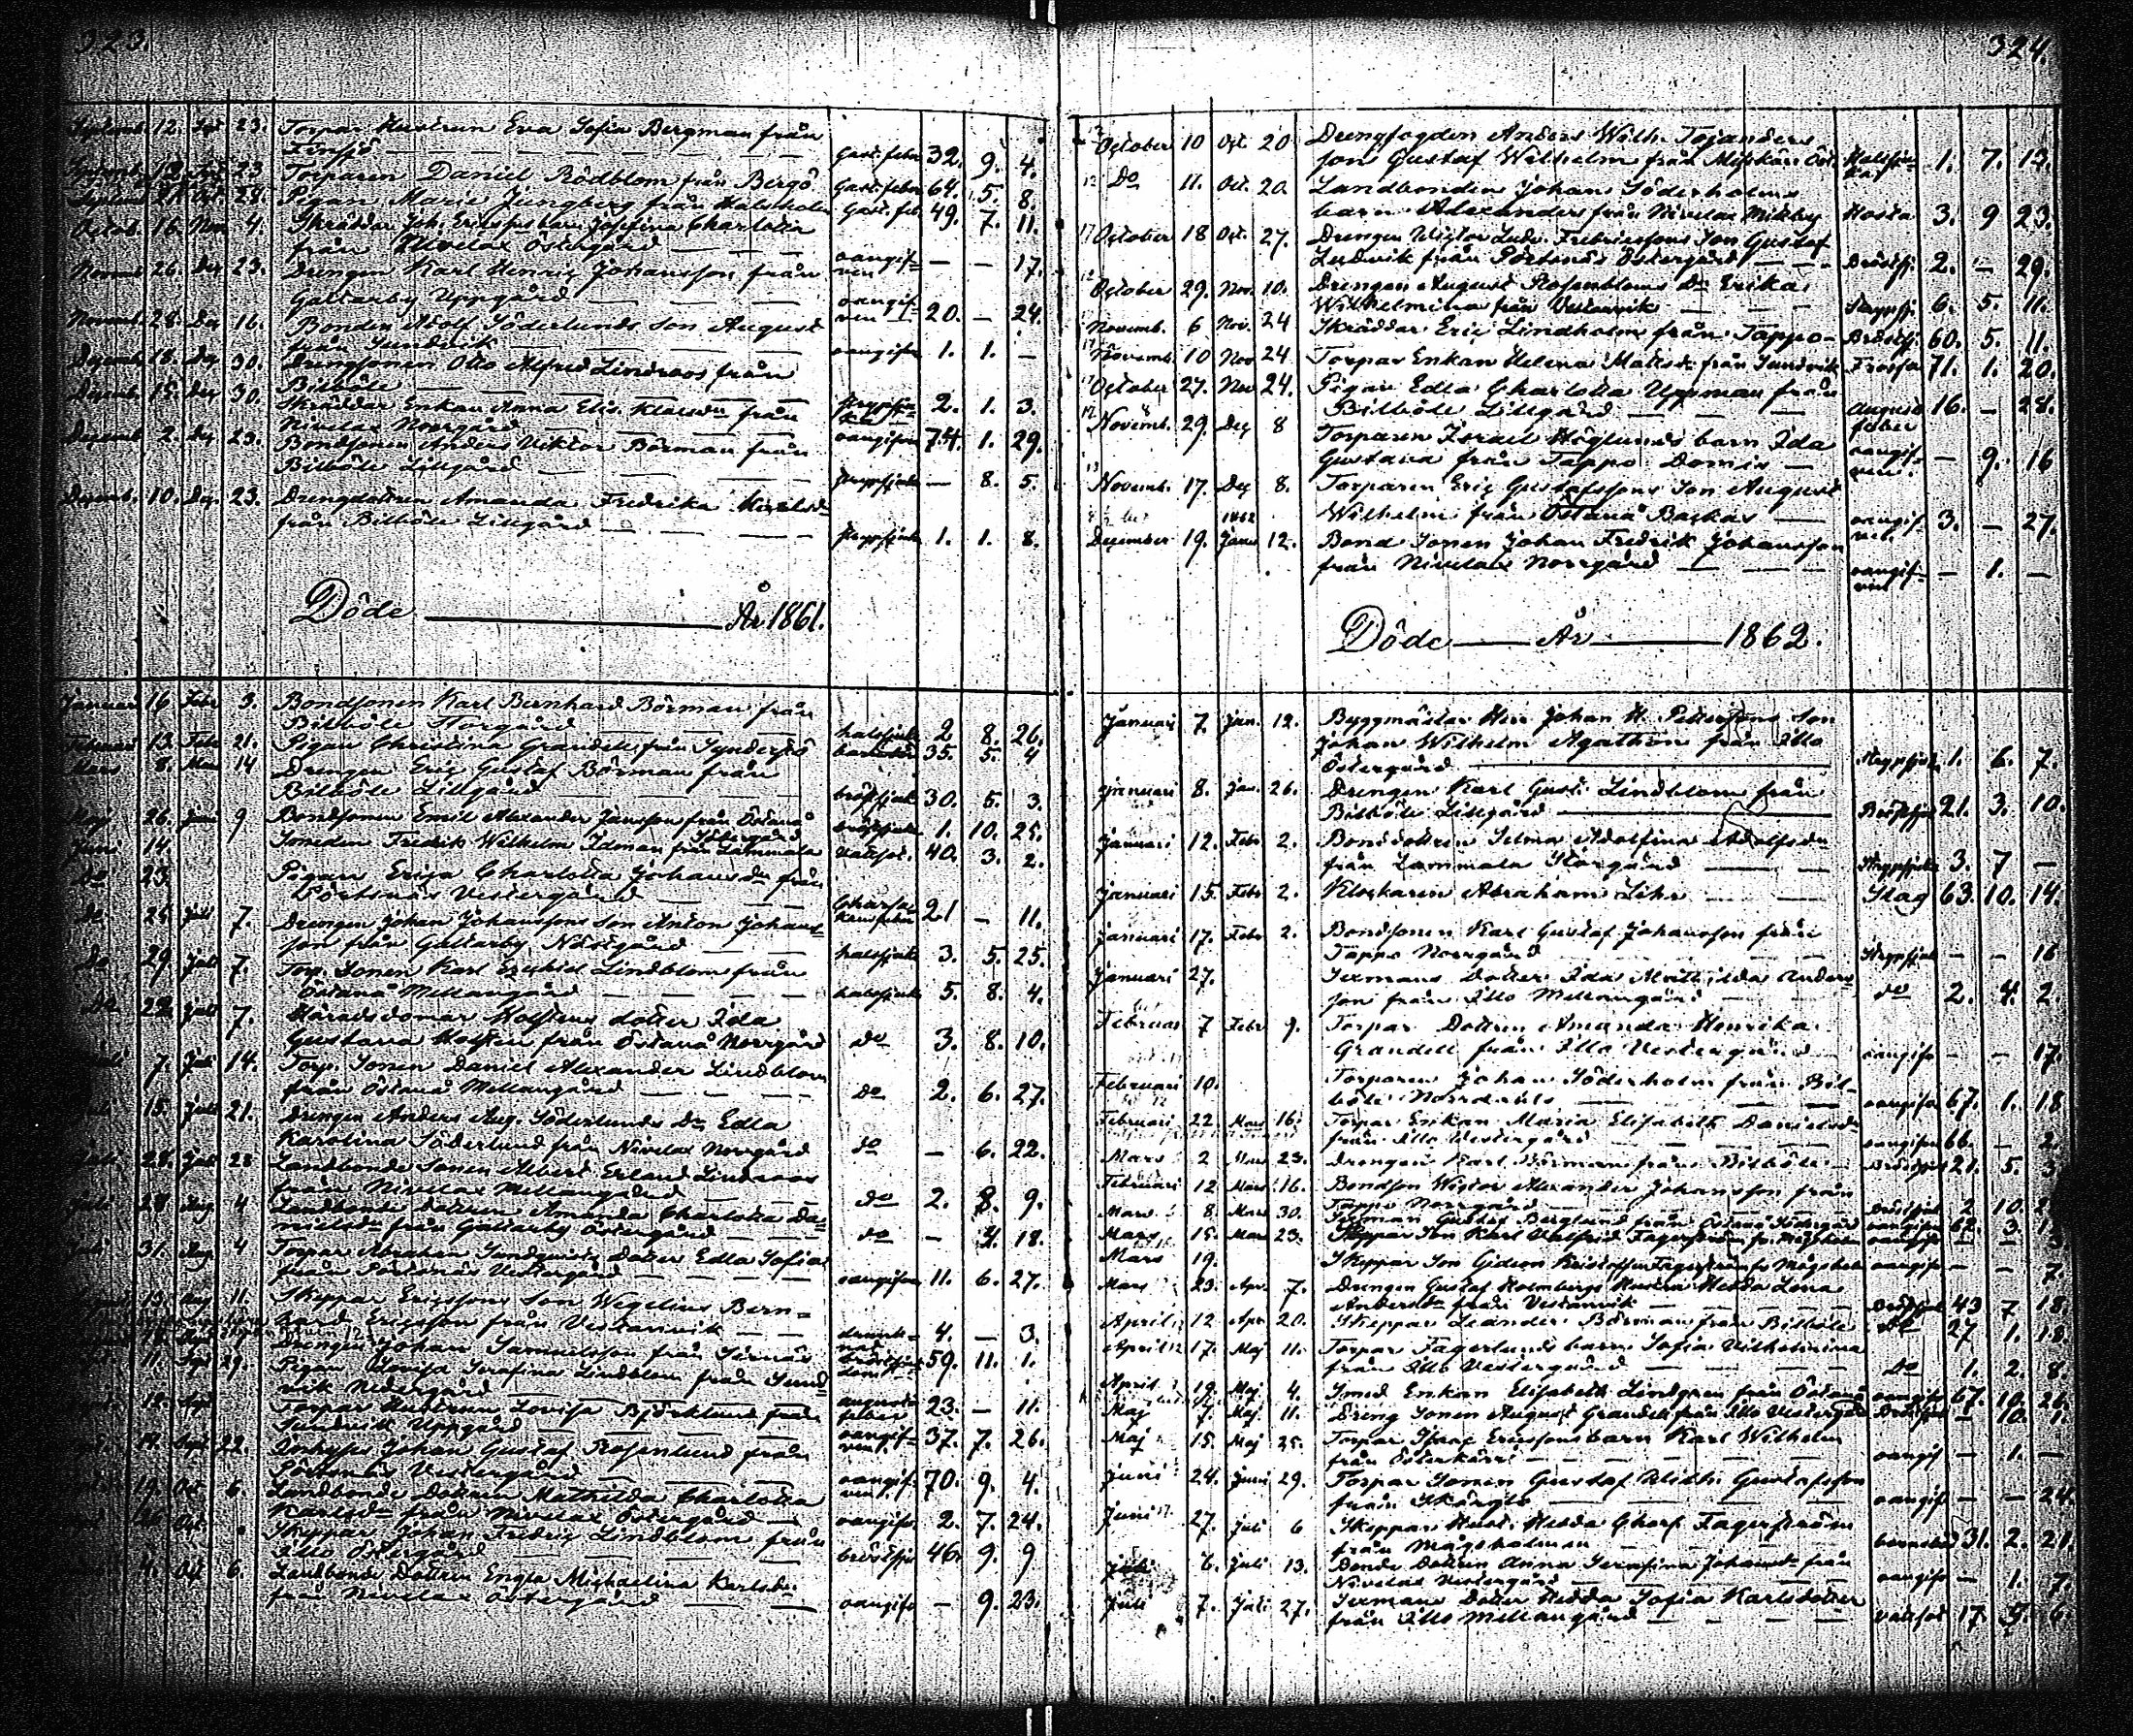 323.
Septemb. 12. Sept 23. Torpar Hustrun Eva Sofia Bergman från
Finsjö Gast. feber 32. 9. 4.
Septemb. 12 Sept 23 Torparen Daniel Rödblom från Bergö Gast. feber 64. 5. 8.
Septemb 21. 28. Pigan Maria Ljungberg från Gast. feb. 49. 7. 11.
Octob. 16. Nov 4. Skräddar Joh. Ericssons barn Josefina Charlotta
från Nivelax Östergård oangifven — — 17.
Novemb 26. Dec 23. Drengen Karl Henric Johansson från
Galtarby Uppgård oangifven 20. — 24.
Novemb. 28. Dec 16. Bonden Adolf Söderlunds Son August
från Sundvik oangifven 1. 1. —
Decemb. 18. Dec 30. Drengsonen Otto Alfred Lindroos från
Bilböle Strypsju- 2. 1. 3.
Decemb. 15. Dec 30. Skräddar Enkan Anna Elis. Klasdr från
Nivelax Norrgård oangifven 74. 1. 29.
Decemb 2. Dec 23. Bondsonen Anders Viktor Börman från
Bilböle Lillgård Strypsjuk — 8. 5.
Decemb. 10. Dec. 23. Drengdottren Amanda Fredrika
från Bilböle Lillgård Strypsjuk 1. 1. 8.
Döde År 1861.
Januari 16 Febr 3. Bondsonen Karl Bernhard Börman från
Bilböle Storgård halssjuk 2 8. 26.
Februari 13. Febr 21. Pigan Christina Grandell från 35. 5. 4
Mars 8. Mar 14 Drengen Eric Gustaf Börman från
Bilböle Lillgård bröstsjuk 30. 5. 3.
Maj 26. Juni 9 Bondsonen Emil Alexander Jansson från Östanå
Södergård bröstsjuk 1. 10. 25.
Juni 14. Smeden Fredrik Wilhelm Idman från Lammala vattsot. 40. 3. 2.
Do 23. Pigan Erica Charlotta Johansdr från
Pörtsnäs Vestergård feber 21 — 11.
Do 25 Juli 7. Drengen Johan Johanssons Son Anton Johans-
son från Galtarby Nästgård halssjuk 3. 5. 25.
Do 29 Juli 7. Torp. Sonen Karl Ezekiel Lindblom från
Östanå Mellangård halssjuk 5. 8. 4.
Do 22 Juli 7. Häradsdomar Holsténs dotter Ida
Gustava Holstén från Östanå Norrgård do 3. 8. 10.
Juli 7. Juli 14. Torp. Sonen Daniel Alexander Lindblom
från Östanå Mellangård do 2. 6. 27.
Juli 15. Juli 21. Drengen Anders Aug. Söderlunds Dr Edla
Karolina Söderlund från Nivelax Norrgård do — 6. 22.
Juli 28. Juli 28 Landbonde Sonen Albert Erland Lindroos
från Nivelax Mellangård do 2. 8. 9.
Juli 28 Aug. 4 Landbonde dottren Amanda Charlotta Da-
nielsdr från Galtarby Östergård do — 4. 18.
Juli 31. Aug. 4 Torpar Abraham Sundqvists Dotter Edla Sofia
från Pörtsnäs Vestergård oangifven 11. 6. 27.
13. Aug. 11. Skeppar Ericssons Son Wegelius Bern-
hard Ericsson från Vestanvik drunk- 4. — 3.
Drengen Johan Samuelsson från Sirnäs bröstsjuk- 59. 11. 1.
11. Sept 29. Pigan Lovisa Serafina Lindblom från Sund-
vik Nedergård augusti feber 23. — 11.
12. Sept Torpar Hustrun Lovisa Björklund från
Sundvik Uppgård oangifven 37. 7. 26.
14. Sept 22. Inhyses Johan Gustaf Rosenlund från
Pörtsnäs Vestergård oangifven 70. 9. 4.
19. Oct 6. Landbonde dottren Mathilda Charlotta
Karlsdr från Nivelax Östergård oangifv. 2. 7. 24.
Skeppar Johan Fredric Lindblom från
Illo Östergård bröstsju 46. 9. 9
4. Oct 6. Landbonde Dottren Engla Michaelina Karlsdr
från Nivelax Östergård oangifv — 9. 23.
324.
October 10 Oct. 20 Drengfogden Anders Wilh. Tojanders
Son Gustaf Wilhelm från 1. 7. 12.
Do 11. Oct. 20. Landbonden Johan Söderholms
barn Alexander från Nivelax Mikby Hosta 3. 9 23.
October 18 Oct. 27. Drengen Victor Ludv. Fredricssons Son Gustaf
Ludvik från Pörtsnäs Östergård Bröstsj. 2. — 29.
October 29. Nov. 10. Drengen August Rosenbloms Dr Erika
Wilhelmina från Vestanvik Strypsj. 6. 5. 11.
Novemb. 6 Nov. 24 Skräddar Eric Lindholm från Tappo Bröstsj. 60. 5. 11.
Novemb. 10 Nov 24 Torpar Enkan Helena Matsdr från Sundvik Frossa 71. 1. 20.
October 27. Nov 24. Pigan Edla Charlotta Uppman från
Bilböle Lillgård Augusti feber 16. — 28.
Novemb. 29. Dec 8 Torparen Israel Höglunds barn Ida
Gustava från Tappo Domis oangifven. — 9. 16
Novemb. 17. Dec 8. Torparen Eric Gustafssons Son August
Wilhelm från Östanå Backas oangifven. 3. — 27.
1862
December 19. Janu 12. Bond Sonen Johan Fredrik Johansson
från Nivelax Norrgård oangifven — 1. —
Döde År 1862.
Januari 7. Jan. 12. Byggmästar Herr Johan H. Pettersons Son
Johan Wilhelm Agathon från Illo
Östergård Strypsjuk. 1. 6. 7.
Januari 8. Jan. 26. Drengen Karl Gust. Lindblom från
Bilböle Lillgård Bröstsjuk 21. 3. 10.
Januari 12. Febr 2. Bonddottren Selma Adolfina Adolfsdr
från Lammala Storgård Strypsjuk 3. 7 —
Januari 15. Febr 2. Klockaren Abraham Lihr Slag 63. 10. 14.
Januari 17. Febr 2. Bondsonen Karl Gustaf Johansson från
Tappo Norrgård Strypsjuk — — 16
Januari 27. Sexmans Dotter Ida Mathilda Anders-
son från Illo Mellangård do 2. 4. 2.
Februari 7 Febr 9. Torpar Dottren Amanda Henrika
Grandell från Illo Vestergård oangifv — — 17.
Februari 10. Torparen Johan Söderholm från Bil-
böle oangifv 67. 1. 18
Februari 22. Mars 16. Torpar Enkan Maria Elisabeth Danielsdr
från Illo Vestergård oangifven 66. — 2.
Mars 2 Mars 23. Drengen Karl Börman från Bilböle Bröstsjuk 21. 5. 3
Februari 12 Mars 16. Bondson Victor Alexander Johansson från
Tappo Norrgård Bröstsjuk 2 10.
Mars 8. Mars 30. Gustaf Berglund från Östanå Södergård oangifven 62. 3.
Mars 15. Mars 23. Skeppar Son Karl Valfrid Fagerström fr. Mågsholm oangifv — —
Mars 19. Skeppar Son Gideon Kristoffer Fagerström fr Mågsholm oangifv — — 7.
Mars 23. Apr. 7. Drengen Gustaf Holmbergs Hustru Hedda Lena
från Vestanvik Bröstsjuk 43 7 18.
April 12 Apr 20. Skeppar Leander Börman från Bilböle Do 27 1. 18.
April 17. Maj 11. Torpar Fagerlunds barn Sofia Vilhelmina
från Illo Vestergård Do 1. 2. 8.
April 19. Maj 4. Smed Enkan Elisabeth Lindgren från Östanå oangifv 67. 10. 26.
Maj 7. Maj 11. Dreng Sonen August Grandell från Illo Vestergård Bröstsjuk — 10. 1.
Maj 15. Maj 25. Torpar Isaac Ericssons barn Karl Wilhelm
från Österkärr oangif — 1. —
Juni 24. Juni 29. Torpar Sonen Gustaf Wilh. Gustafsson
från oangifv — — 24.
Juni 27. Juli 6 Skeppar Hust. Hedda Charl. Fagerström
från Mågsholmen barnsbörd 31. 2. 21
Juli 6. Juli 13. Bonde Dottren Anna Serafina Johansdr från
Nivelax Vestergård oangifv — 1. 7.
Juli 7. Juli 27. Sexmans Dotter Hedda Sofia Karlsdotter
från Illo Mellangård vattsot 17. 5. 6.